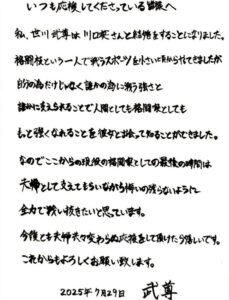 いつも応援してくださっている皆様へ
私、世川武尊は川口葵さんと結婚をすることになりました。
格闘技という一人で戦うスポーツを小さい頃からやってきましたが
自分の為だけじゃなく誰かの為に戦う強さと
誰かに支えられることで人間としても格闘家としても
もっと強くなれることを彼女と出会って知ることができました。
なのでここからの現役の格闘家としての最後の時間は
夫婦として支えてもらいながら悔いの残らないように
全力で戦い抜きたいと思っています。
今後とも夫婦共々変わらぬ応援をして頂けたら嬉しいです。
これからもよろしくお願い致します。
2025年7月29日 武尊